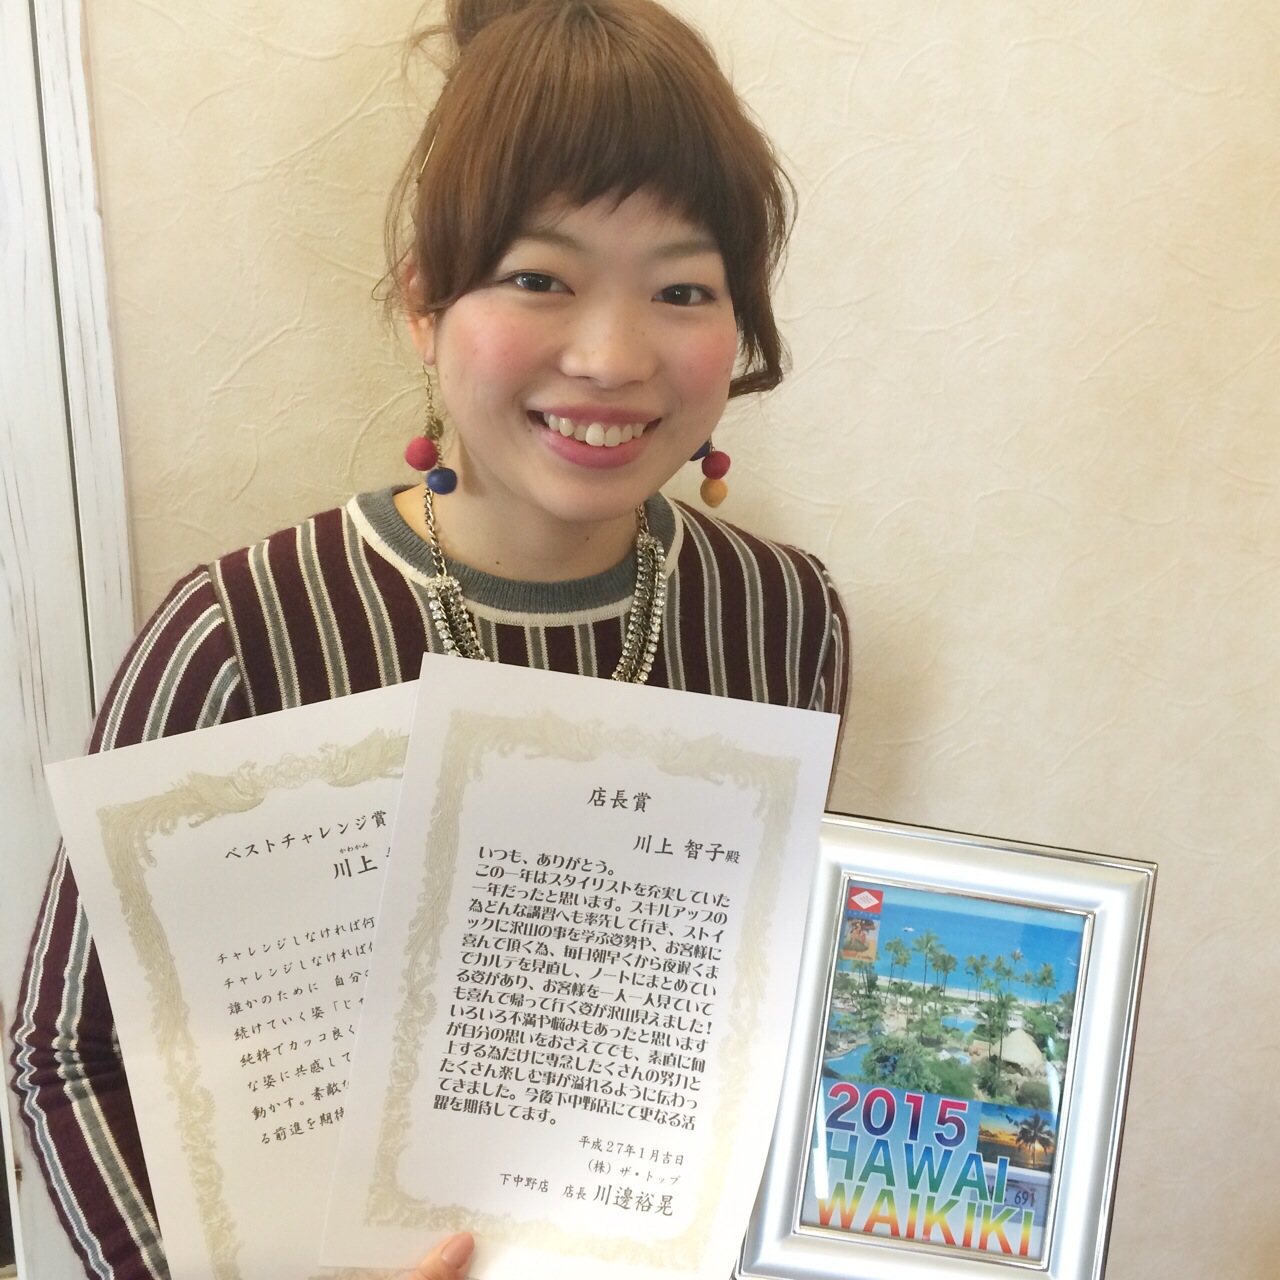 ベストチャレンジ賞
かわかみ
川上
チャレンジしなければ何
チャレンジしなければ
誰かのために 自分
続けていく姿「じゃ
純粋でカッコ良く
な姿に共感して
動かす。素敵な
る前進を期待
店長賞
川上 智子殿
いつも、ありがとう。
この一年はスタイリストを充実していた
一年だったと思います。スキルアップの
為どんな講習へも率先して行き、ストイ
ックに沢山の事を学ぶ姿勢や、お客様に
喜んで頂く為、毎日朝早くから夜遅くま
でカルテを見直し、ノートにまとめてい
る姿があり、お客様を一人一人見ていて
も喜んで帰って行く姿が沢山見えました！
いろいろ不満や悩みもあったと思います
が自分の思いをおさえてでも、素直に向
上する為だけに専念したくさんの努力と
たくさん楽しむ事が溢れるように伝わっ
てきました。今後下中野店にて更なる活
躍を期待してます。
平成27年1月吉日
（株）ザ・トップ
下中野店 店長 川邊裕晃
2015
HAWAI
WAIKIKI